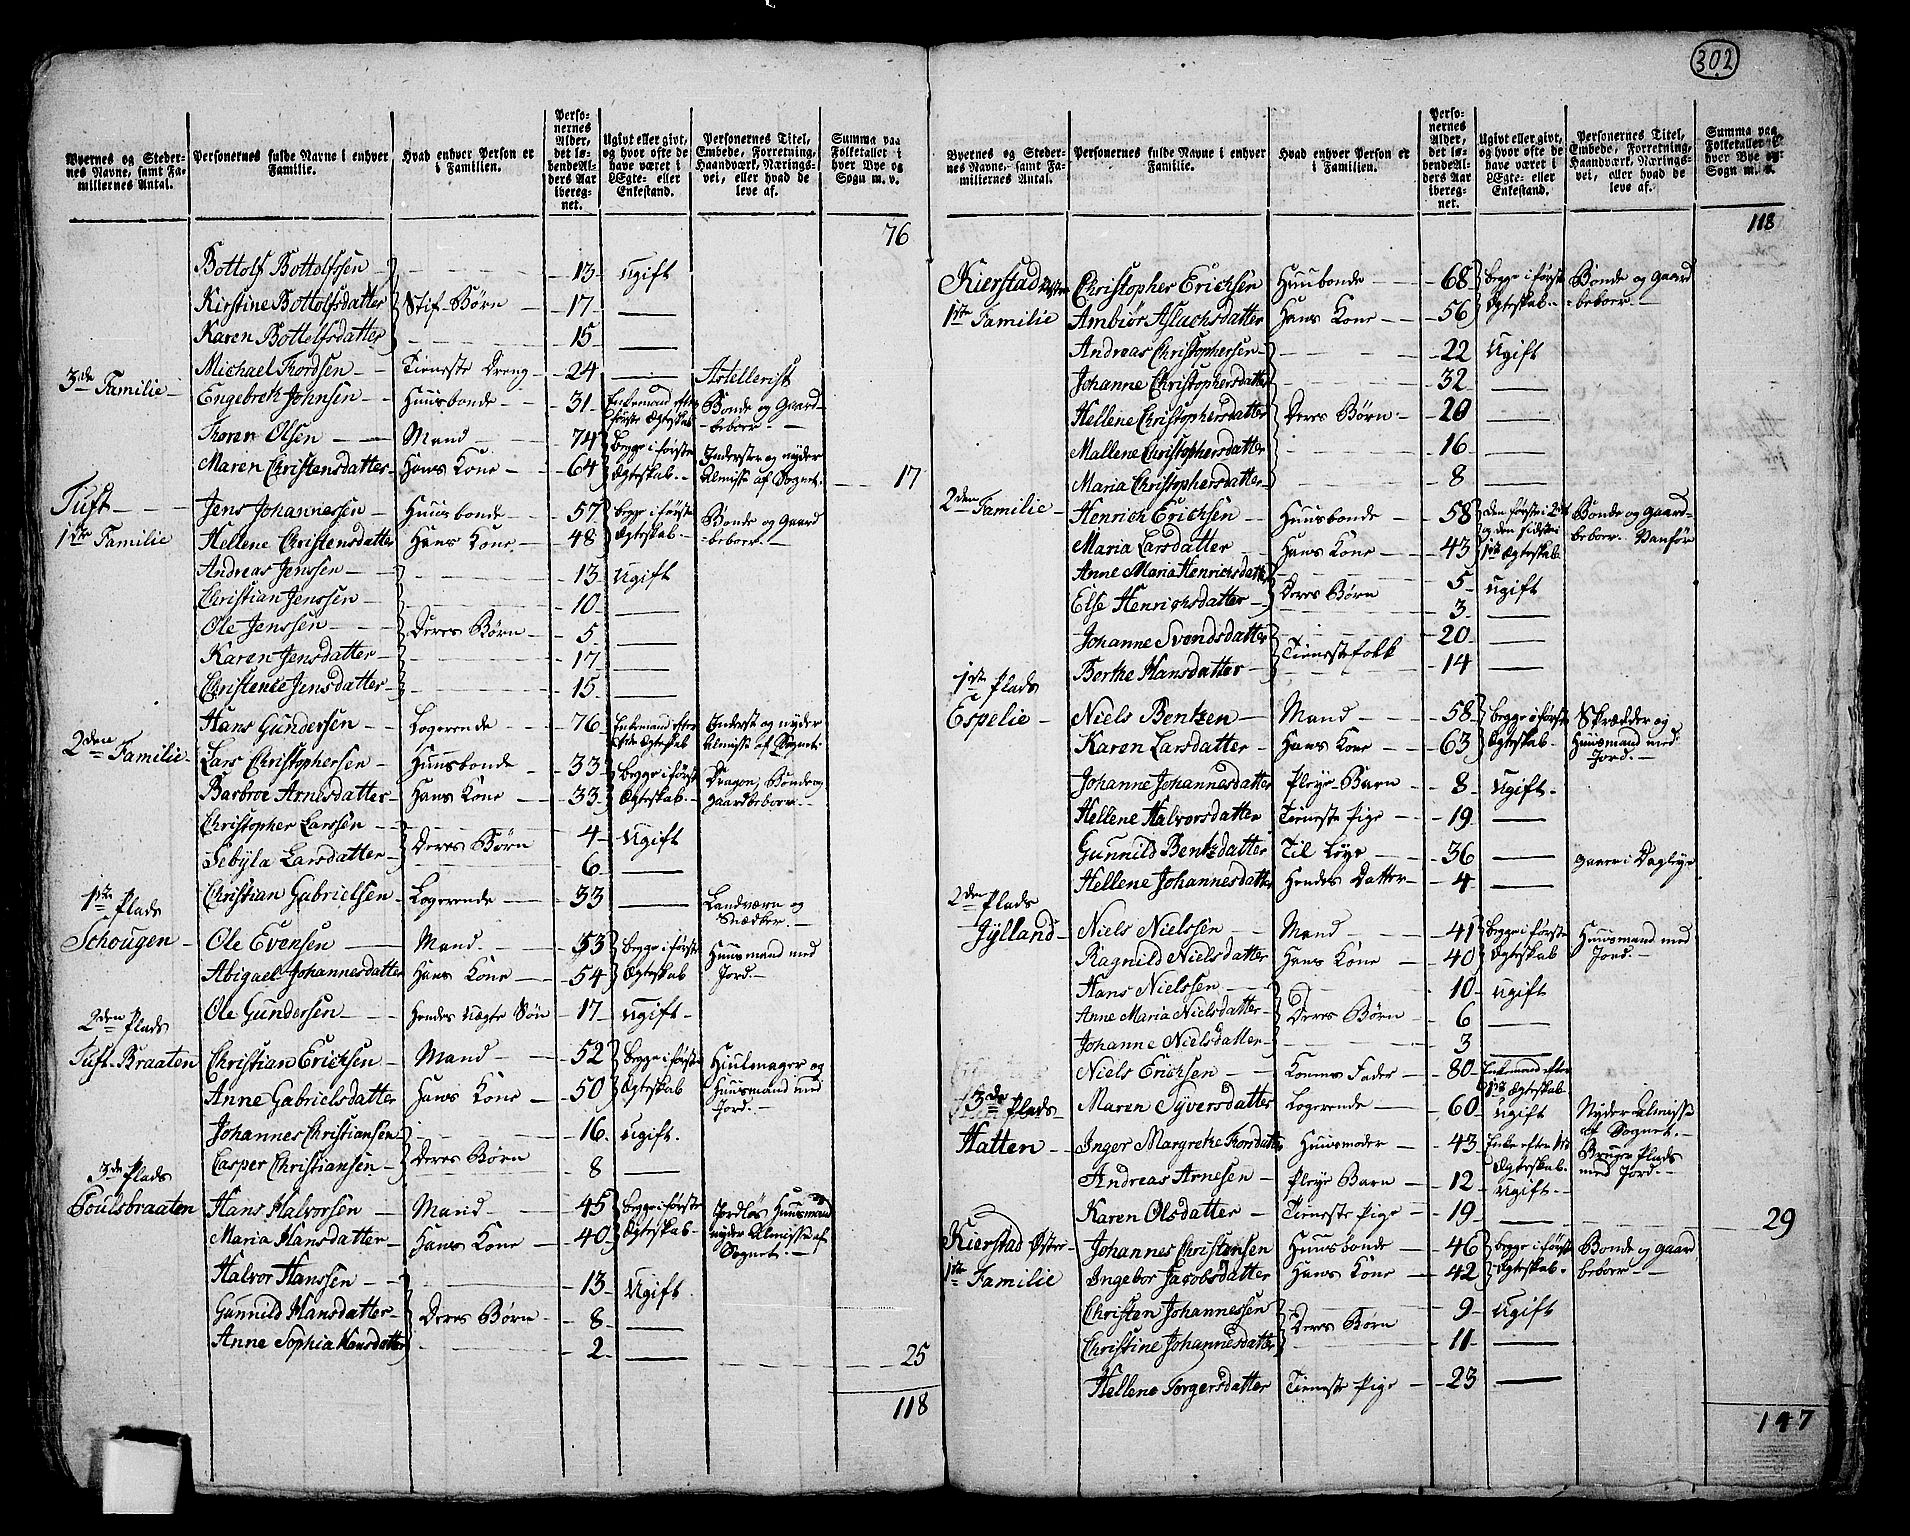 302
Byernes og Stedernes Navne, samt Familiernes Antal. | Personernes fulde Navne i enhver Familie. | Hvad enhver Person er i Familien. | Personernes Alder, det løbende Alders Aar iberegnet. | Ugivt eller givt, og hvor ofte de have været i Ægte- eller Enkestand. | Personernes Titel, Embede, Forretning, Haandværk, Næringsvei, eller hvad de leve af. | Summa paa Folketallet i hver Bye og Sogn m. v.
76
Bottolf Bottolfssen 13 Ugift
Kirstine Bottolfsdatter Stif Børn 17
Karen Bottolfsdatter 15
Michael Thordsen Tieneste Dreng 24 Artellerist
3de Familie Engebreth Johnsen Huusbonde 31 Enkemand efter første Ægteskab Bonde og Gaardbeboer
Thoren Olsen Mand 74 begge i første Inderster og nyder
Maren Christensdatter Hans Kone 64 Ægteskab. Almisse af Sognet. 17
Tuft Jens Johannessen Huusbonde 57 begge i første Bonde og Gaard
1ste Familie Hellene Christensdatter Hans Kone 48 Ægteskab. beboer.
Andreas Jenssen 13 Ugift
Christian Jenssen 10
Ole Jenssen Deres Børn 5
Karen Jensdatter 17
Christence Jensdatter 15
Hans Gundersen Logerende 76 Enkemand efter Ægteskab Inderst og nyder Almisse af Sognet
2den Familie Lars Christophersen Huusbonde 33 begge i første Dragon, Bonde og
Barbroe Arnesdatter Hans Kone 33 Ægteskab. Gaardbeboer.
Christopher Larssen Deres Børn 4 Ugift
Sebyla Larsdatter 6
1ste Plads Christian Gabrielsen Logerende 33 Landværn og Snedker.
Schougen Ole Evensen Mand 53 begge i første Huusmand med
Abigael Johannesdatter Hans Kone 54 Ægteskab Jord.
2den Plads Ole Gundersen Hendes Uægte Søn 17 Ugift
Tuft-Braaten Christian Ericksen Mand 52 begge i første Hiulmager og
Anne Gabrielsdatter Hans Kone 50 Ægteskab Huusmand med Jord.
Johannes Christiansen Deres Børn 16 Ugift.
Casper Christiansen 8
3de Plads
Poulsbraaten Hans Halvorsen Mand 45 begge i første Jordløs Huusmand
Maria Hansdatter Hans Kone 40 Ægteskab nyder Almisse af Sognet.
Halvor Hanssen 13 Ugift.
Gunnild Hansdatter Deres Børn 8
Anne Sophia Hansdatter 2 25
118
Byernes og Stedernes Navne, samt Familiernes Antal. | Personernes fulde Navne i enhver Familie. | Hvad enhver Person er i Familien. | Personernes Alder, det løbende Alders Aar iberegnet. | Ugivt eller givt, og hvor ofte de have været i Ægte- eller Enkestand. | Personernes Titel, Embede, Forretning, Haandværk, Næringsvei, eller hvad de leve af. | Summa paa Folketallet i hver Bye og Sogn m. v.
118
Kierstad Christopher Ericksen Huusbonde 68 begge i første Bonde og Gaard
1ste Familie Ambiør Aslachsdatter Hans Kone 56 Ægteskab. beboer
Andreas Christophersen 22 Ugift
Johanne Christophersdatter 32
Hellene Christophersdatter Deres Børn 20
Mallene Christophersdatter 16
Maria Christophersdatter 8
2den Familie Henrich Ericksen Huusbonde 58 Den første i 2det Bonde og Gaard-
Maria Larsdatter Hans Kone 43 og den sidste i 1ste Ægteskab beboer. Vanfør
Anne Maria Henrichsdatter Deres Børn 5 Ugift
Else Henrichsdatter 3
Johanne Svendsdatter Tienestefolk 20
Berthe Hansdatter 14
1ste Plads
Espelie Niels Bentzen Mand 58 begge i første Skrædder og
Karen Larsdatter Hans Kone 63 Ægteskab. Huusmand med Jord.
Johanne Johannesdatter Pleye Barn 8 Ugift.
Hellene Halvorsdatter Tieneste Pige 19
Gunnild Bentzdatter Til Leye 36 gaaer i Dagleye
Hellene Johannesdatter Hendes Datter 4
2den Plads
Jylland Niels Nielssen Mand 41 begge i første Huusmand med
Ragnild Nielsdatter Hans Kone 40 Ægteskab Jord.
Hans Nielssen 10 Ugift
Anne Maria Nielsdatter Deres Børn 6
Johanne Nielsdatter 3
Niels Ericksen Konens Fader 80 Enkemand efter 1ste Ægteskab
3de Plads Maren Syversdatter Logerende 60 Ugift Nyder Almisse af Sognet.
Hatten Inger Margrethe Thordatter Huusmoder 43 Enke efter 1ste Ægteskab. Bruger Plads med Jord.
Andreas Arnesen Pleye Barn 12 Ugift.
Karen Olsdatter Tieneste Pige 19 29
Kierstad Østre Johannes Christensen Huusbonde 46 begge i første Bonde og Gaard
1ste Familie Ingebor Jacobsdatter Hans Kone 42 Ægteskab. beboer
Christen Johannessen Deres Børn 9 Ugift
Christine Johannesdatter 11
Hellene Torgersdatter Tieneste Pige 23
147